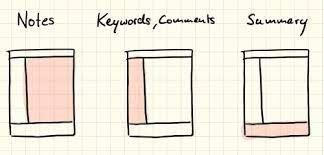 Notes
Keywords, Comments
Summary